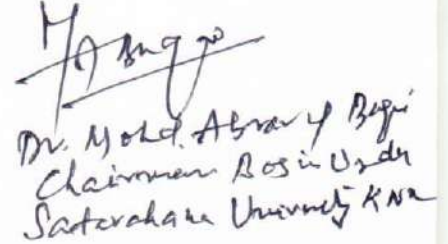 Dr. Mohd. Abrar
Chairman Bos in Urdu
Satavahana University KNR